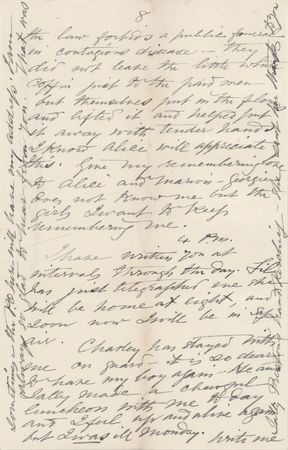 8
the law forbids a public funeral
in contagious disease - they
did not leave the little white
coffin just to the paid men -
but themselves put in the flowers
and lifted it and helped put
it away with tender hands
I know Alice will appreciate
this. Give my remembering love
to Alice and Marion - Georgie
does not know me but the
girls I want to keep
remembering me.
4 P.M.
I have written you at
intervals through the day.
has just telegraphed me she
will be home at eight and
soon now I will be in
air.
Charley has stayed with
me on guard it is so dear
to have my boy again. He and
Sally made a cheerful
luncheon with me to day
and I feel up and alive again
but I was ill Monday. Write me
will have my address. I am
so glad to hear from you. That was